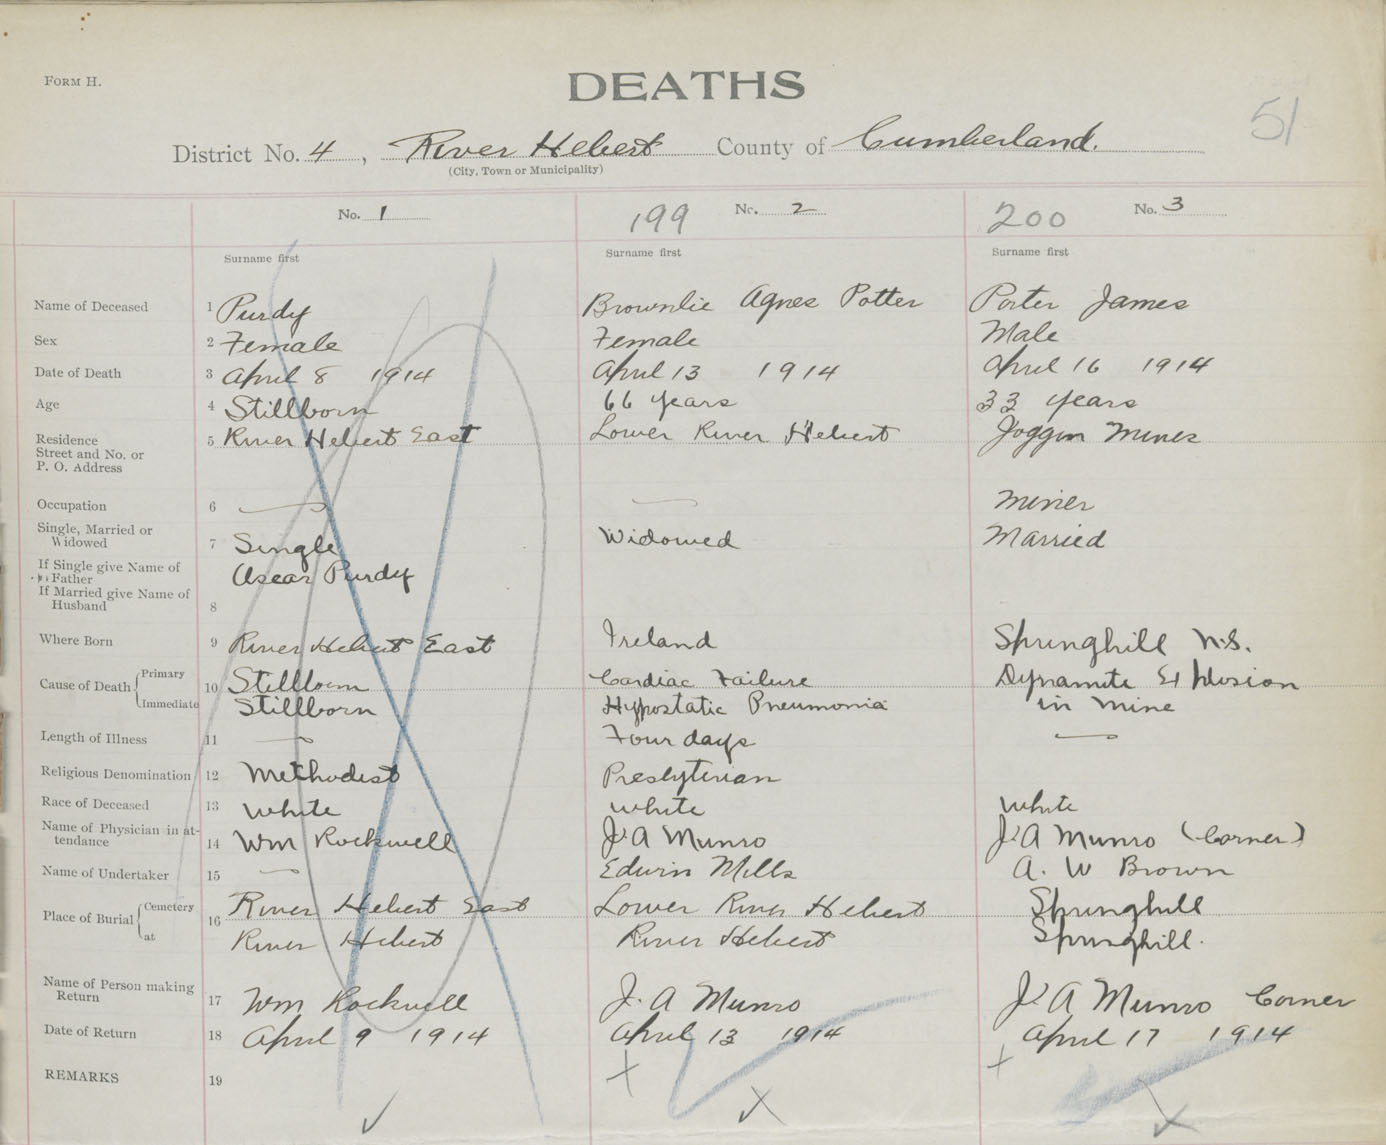 FORM H.
DEATHS
51
District No. 4, River Hebert County of Cumberland.
(City, Town or Municipality)
No. 1
199 No. 2
200 No. 3
Surname first Surname first Surname first
Name of Deceased 1 Purdy Brownlie Agnes Potter Porter James
Sex 2 Female Female Male
Date of Death 3 April 8 1914 April 13 1914 April 16 1914
Age 4 Stillborn 66 years 33 years
Residence Street and No. or P. O. Address 5 River Hebert East Lower River Hebert Joggin Mines
Occupation 6 — — Miner
Single, Married or Widowed 7 Single Widowed Married
If Single give Name of Father Oscar Purdy
If Married give Name of Husband 8
Where Born 9 River Hebert East Ireland Springhill N.S.
Cause of Death Primary 10 Stillborn Cardiac Failure Dynamite Explosion
Immediate Stillborn Hypostatic Pneumonia in Mine
Length of Illness 11 — Four days —
Religious Denomination 12 Methodist Presbyterian
Race of Deceased 13 White White White
Name of Physician in attendance 14 Wm Rockwell J. A Munro J. A Munro (Corner)
Name of Undertaker 15 — Edwin Mills A. W Brown
Place of Burial Cemetery 16 River Hebert East Lower River Hebert Springhill
at River Hebert River Hebert Springhill.
Name of Person making Return 17 Wm Rockwell J. A Munro J. A Munro Corner
Date of Return 18 April 9 1914 April 13 1914 April 17 1914
REMARKS 19